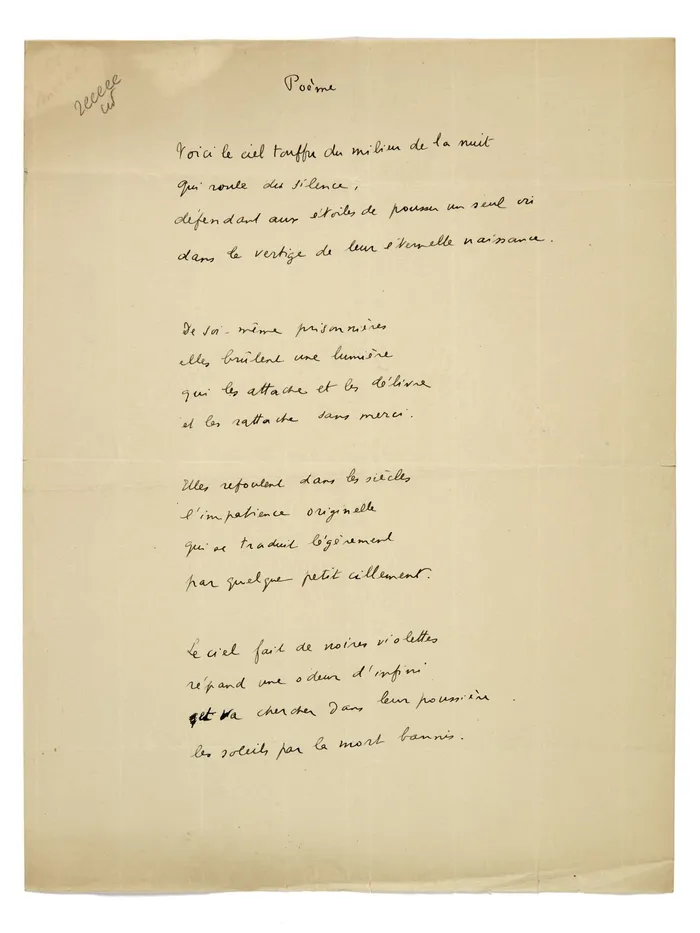 Poême
Voici le ciel touffu du milieu de la nuit
qui roule du silence,
défendant aux étoiles de pousser un seul cri
dans le vertige de leur éternelle naissance.
De soi-même prisonnières
elles brûlent une lumière
qui les attache et les délivre
et les rattache sans merci.
Elles refoulent dans les siècles
l'impatience originelle
qui se traduit légèrement
par quelque petit cillement.
Le ciel fait de noires violettes
répand une odeur d'infini
et va chercher dans leur poussière
les soleils par la mort bannis.